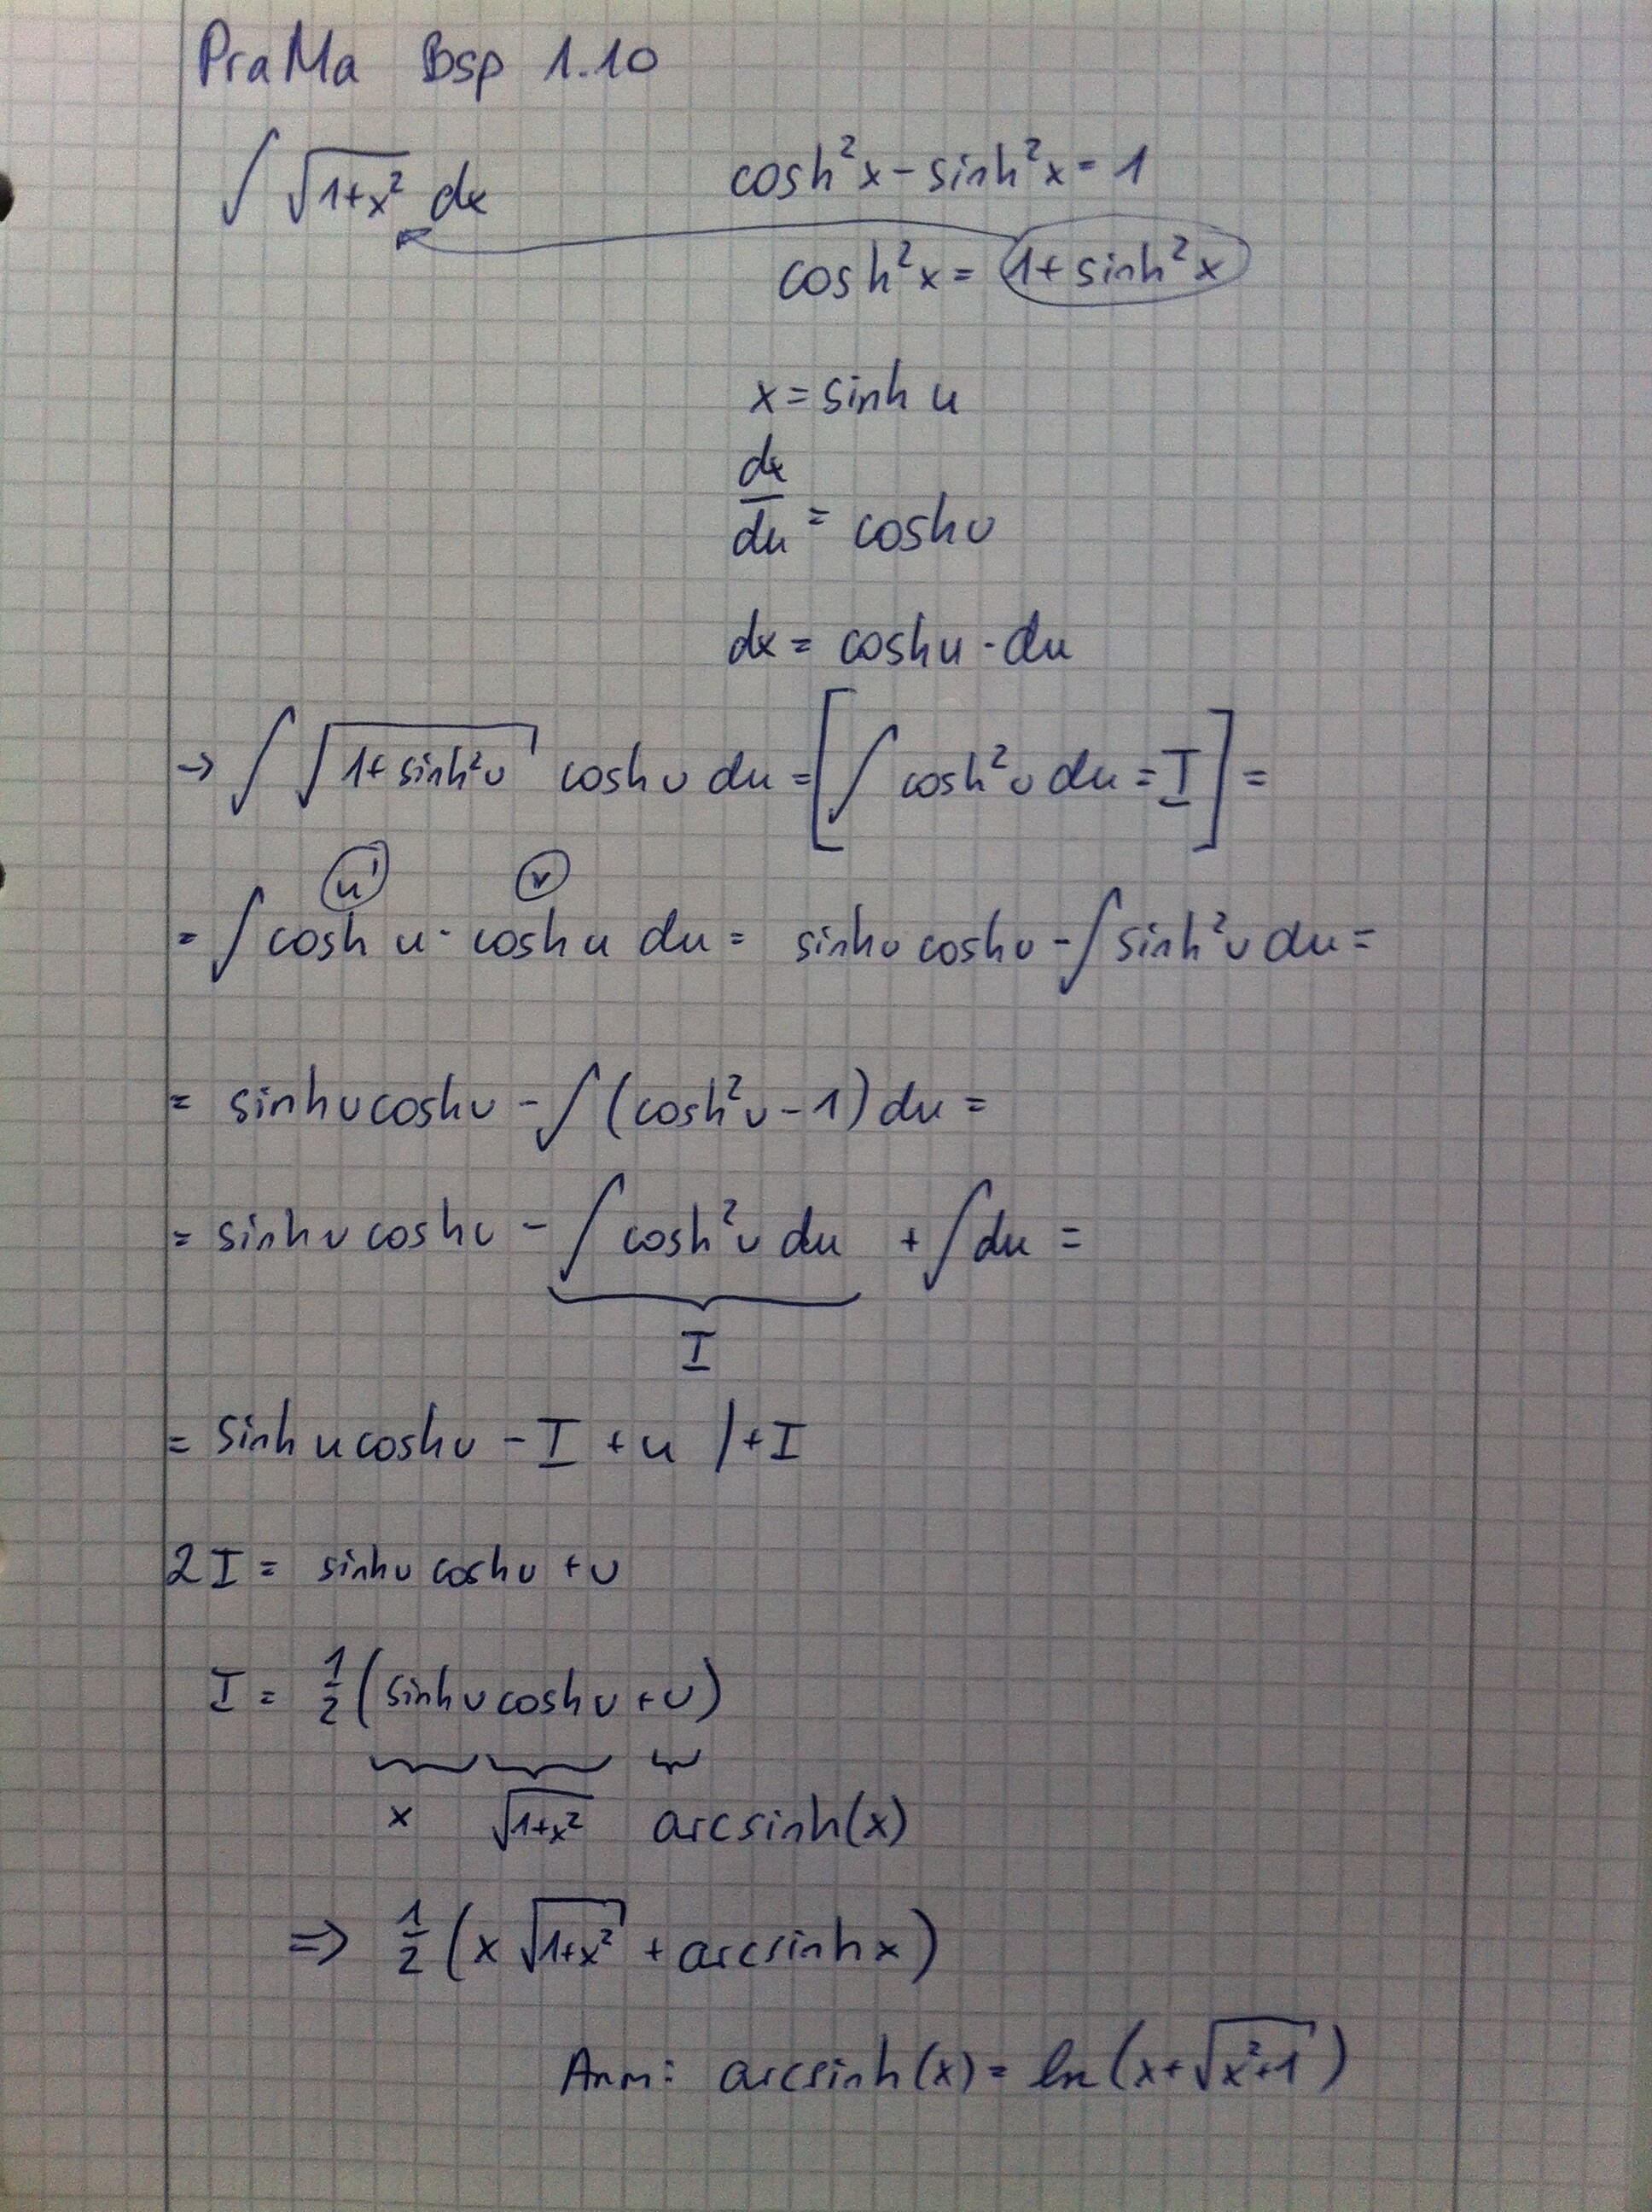 PraMa Bsp 1.10
∫ √(1+x²) dx cosh²x - sinh²x = 1
cosh²x = 1 + sinh²x
x = sinh u
dx/du = cosh u
dx = cosh u · du
→ ∫ √(1+sinh²u) cosh u du = [∫ cosh²u du = I] =
u' v
= ∫ cosh u · cosh u du = sinh u cosh u - ∫ sinh²u du =
= sinh u cosh u - ∫ (cosh²u - 1) du =
= sinh u cosh u - ∫ cosh²u du + ∫ du =
I
= sinh u cosh u - I + u /+I
2I = sinh u cosh u + u
I = 1/2 (sinh u cosh u + u)
x √(1+x²) arcsinh(x)
⇒ 1/2 (x √(1+x²) + arcsinh x)
Anm: arcsinh(x) = ln(x+√(x²+1))